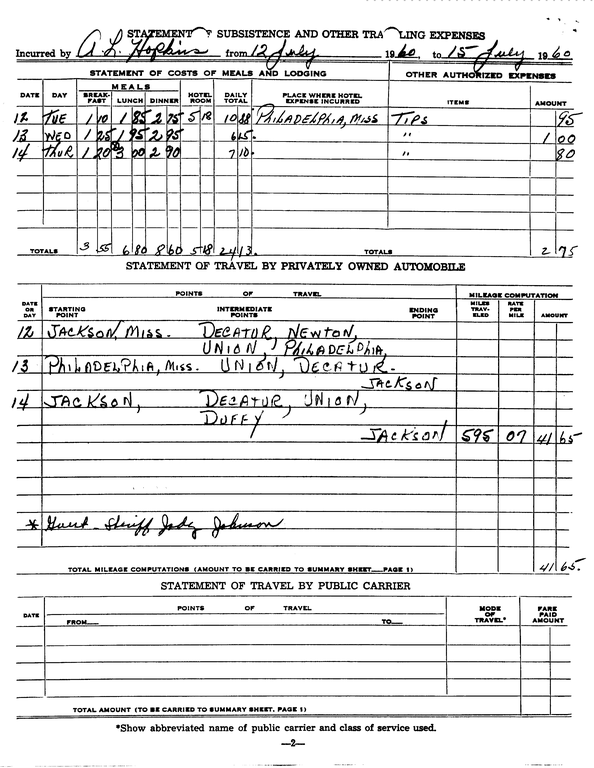 STATEMENT OF SUBSISTENCE AND OTHER TRA LING EXPENSES
Incurred by A. L. Hopkins from 12 July 1960, to 15 July 1960
STATEMENT OF COSTS OF MEALS AND LODGING OTHER AUTHORIZED EXPENSES
DATE DAY MEALS BREAK-FAST LUNCH DINNER HOTEL ROOM DAILY TOTAL PLACE WHERE HOTEL EXPENSE INCURRED ITEMS AMOUNT
12 TUE 1 10 1 85 2 75 5 18 10 88 PHILADELPHIA, MISS TIPS 95
13 WED 1 25 1 95 2 95 6 15. " 1 00
14 THUR 1 20 3 00 2 90 7 10. " 80
TOTALS 3 55 6 80 8 60 5 18 24 13. TOTALS 2 75
STATEMENT OF TRAVEL BY PRIVATELY OWNED AUTOMOBILE
POINTS OF TRAVEL MILEAGE COMPUTATION
DATE OR DAY STARTING POINT INTERMEDIATE POINTS ENDING POINT MILES TRAV-ELED RATE PER MILE AMOUNT
12 JACKSON, MISS. DECATUR, NEWTON,
UNION, PHILADELPHIA,
13 PHILADELPHIA, MISS. UNION, DECATUR.
JACKSON
14 JACKSON, DECATUR, UNION,
DUFFY
JACKSON 595 07 41 65
* Guest - Sheriff Jody Johnson
TOTAL MILEAGE COMPUTATIONS (AMOUNT TO BE CARRIED TO SUMMARY SHEET PAGE 1) 41 65.
STATEMENT OF TRAVEL BY PUBLIC CARRIER
DATE POINTS OF TRAVEL MODE OF TRAVEL* FARE PAID AMOUNT
FROM TO
TOTAL AMOUNT (TO BE CARRIED TO SUMMARY SHEET, PAGE 1)
*Show abbreviated name of public carrier and class of service used.
—2—